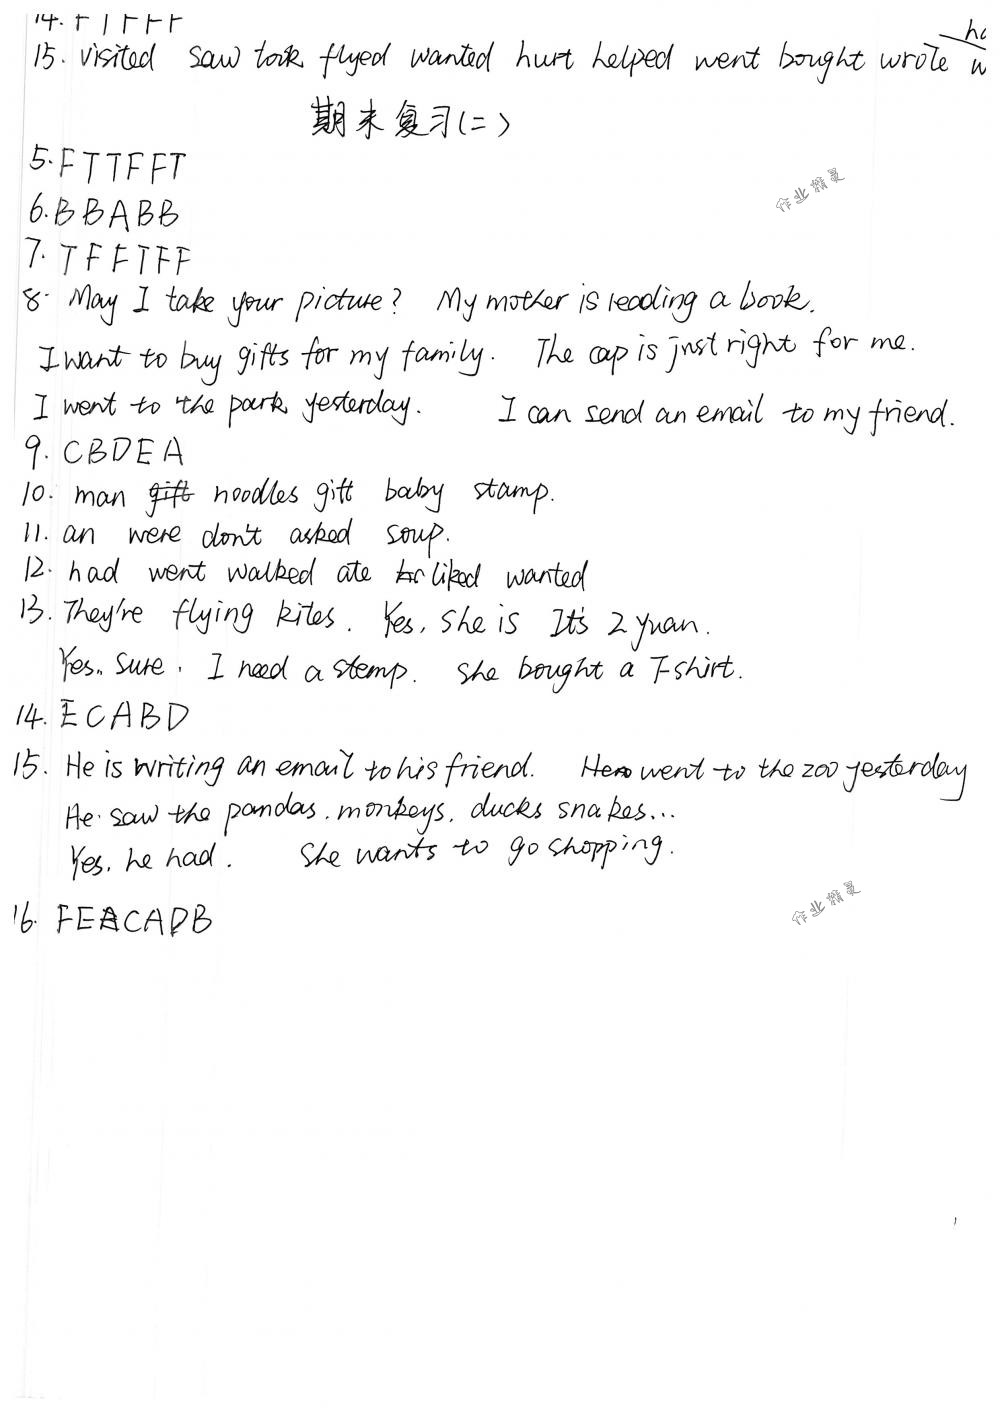 14. F T F F F
15. visited saw took flyed wanted hurt helped went bought wrote
期末复习(二)
5. F T T F F T
作业精灵
6. B B A B B
7. T F F T F F
8. May I take your picture? My mother is reading a book.
I want to buy gifts for my family. The cap is just right for me.
I went to the park yesterday. I can send an email to my friend.
9. C B D E A
10. man gift noodles gift baby stamp.
11. an were don't asked soup.
12. had went walked ate liked wanted
13. They're flying kites. Yes, she is It's 2 yuan.
Yes, Sure. I need a stemp. She bought a T-shirt.
14. E C A B D
15. He is writing an email to his friend. He went to the zoo yesterday
He saw the pandas, monkeys, ducks snakes...
Yes, he had. She wants to go shopping.
作业精灵
16. F E C A D B